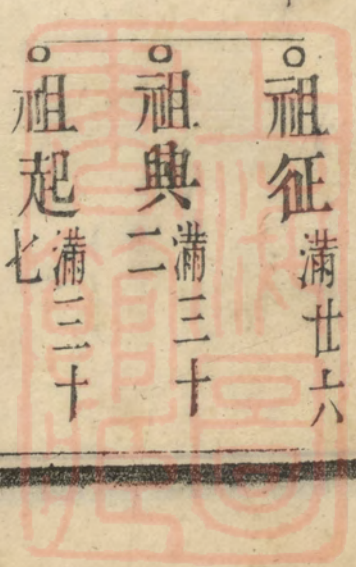 ○祖征滿廿六
○祖興滿三十二
○祖起滿三十七